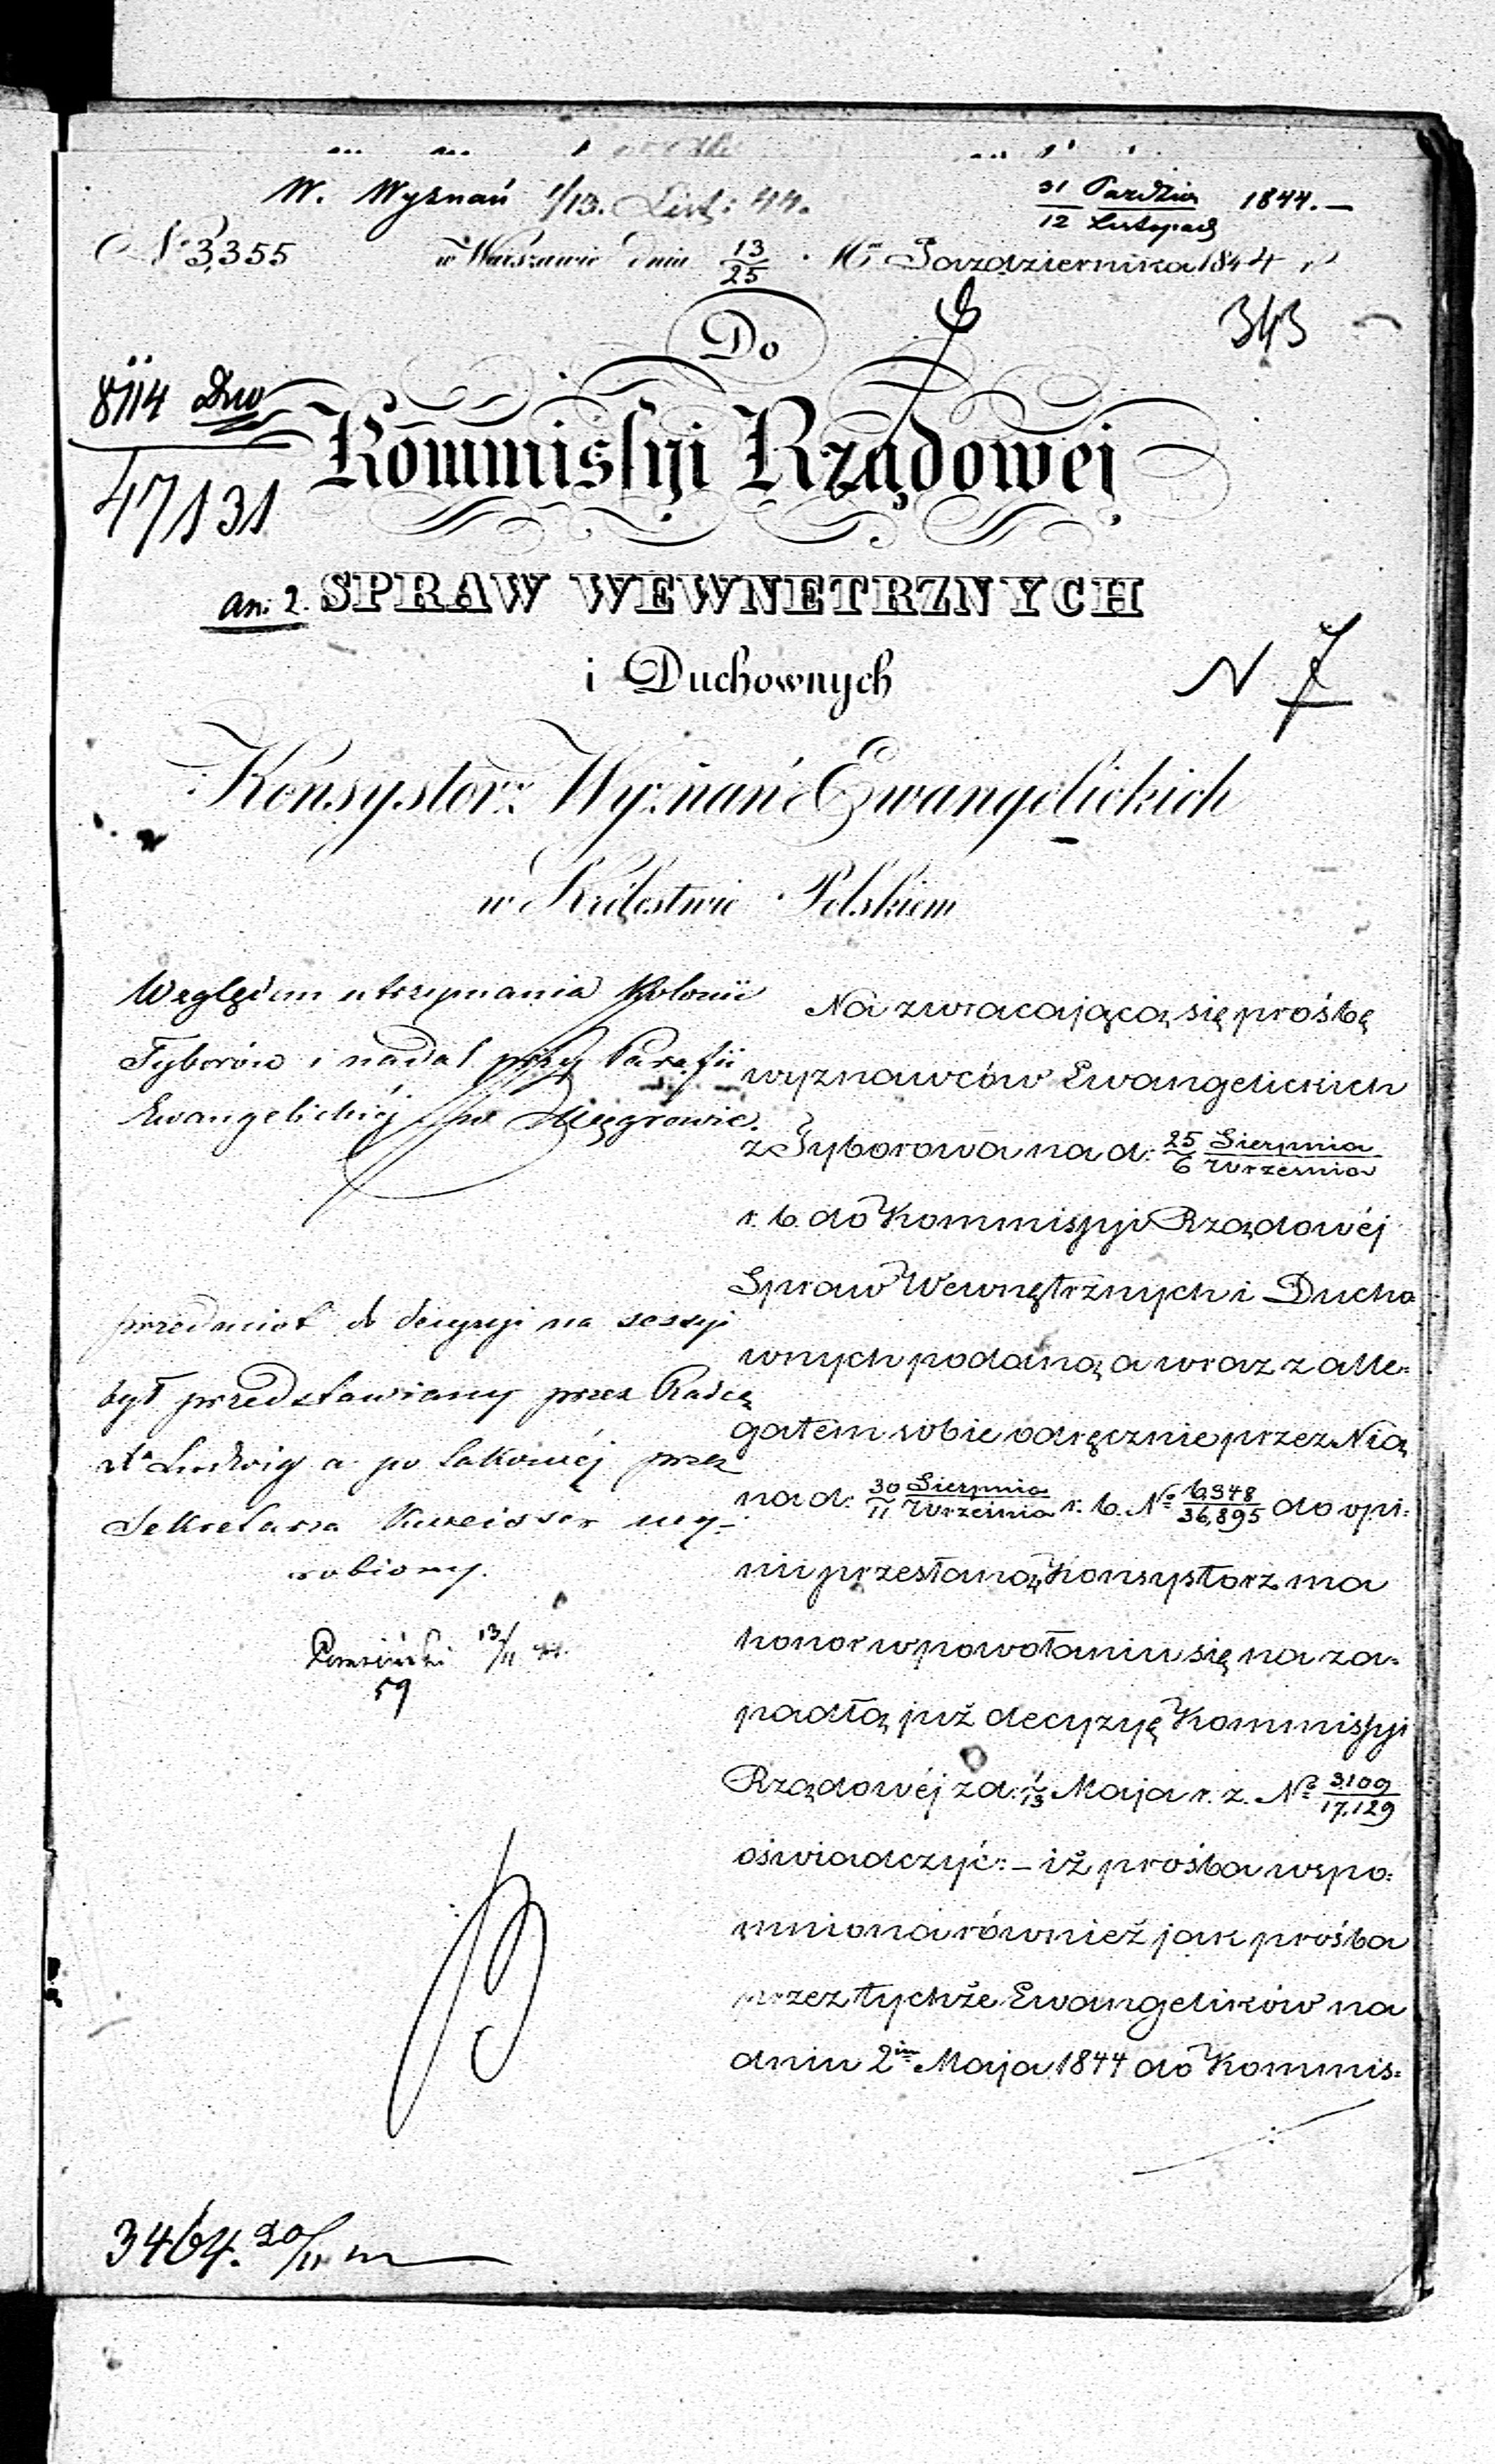 W. Wyznań 1/13. List: 44.
31 Paździa 1844. —
12 Listopad
N 3,355 w Warszawie dnia 13/25 Mca Października 1844 r
343
Do
8114 Dw
47131
Kommissyi Rządowej
an: 2. SPRAW WEWNETRZNYCH
i Duchownych
N 7
Konsystorz Wyznań Ewangelickich
w Królestwie Polskiem
Względem utrzymania Kolonii
Tyborów i nadal przy Parafii
Ewangelickiéj w Węgrowie.
przedmiot do decyzyi na sessyi
był przedstawiany przez Radcę
Ludwig a po przez
Sekretarza wy-
robiony.
13/11 44.
59
Na zwracającą się prośbę
wyznawców Ewangelickich
z Tyborowa na d: 25 Sierpnia / 6 Września
r. b. do Kommissyi Rządowéj
Spraw Wewnętrznych i Ducho
wnych podaną a wraz z alle-
gatem sobie odręcznie przez Nią
na d: 30 Sierpnia / 11 Września r. b. No 6948/36,895 do opi-
nii przesłaną, Konsystorz ma
honor w powołaniu się na za-
padłą już decyzyę Kommissyi
Rządowéj z d: 1/13 Maja r. z. No 3109/17,129
oświadczyć: – iż prośba wspo-
mniona również jak prośba
przez tychże Ewangelików na
dniu 2im Maja 1844 do Kommis-
3464. 20/11 m